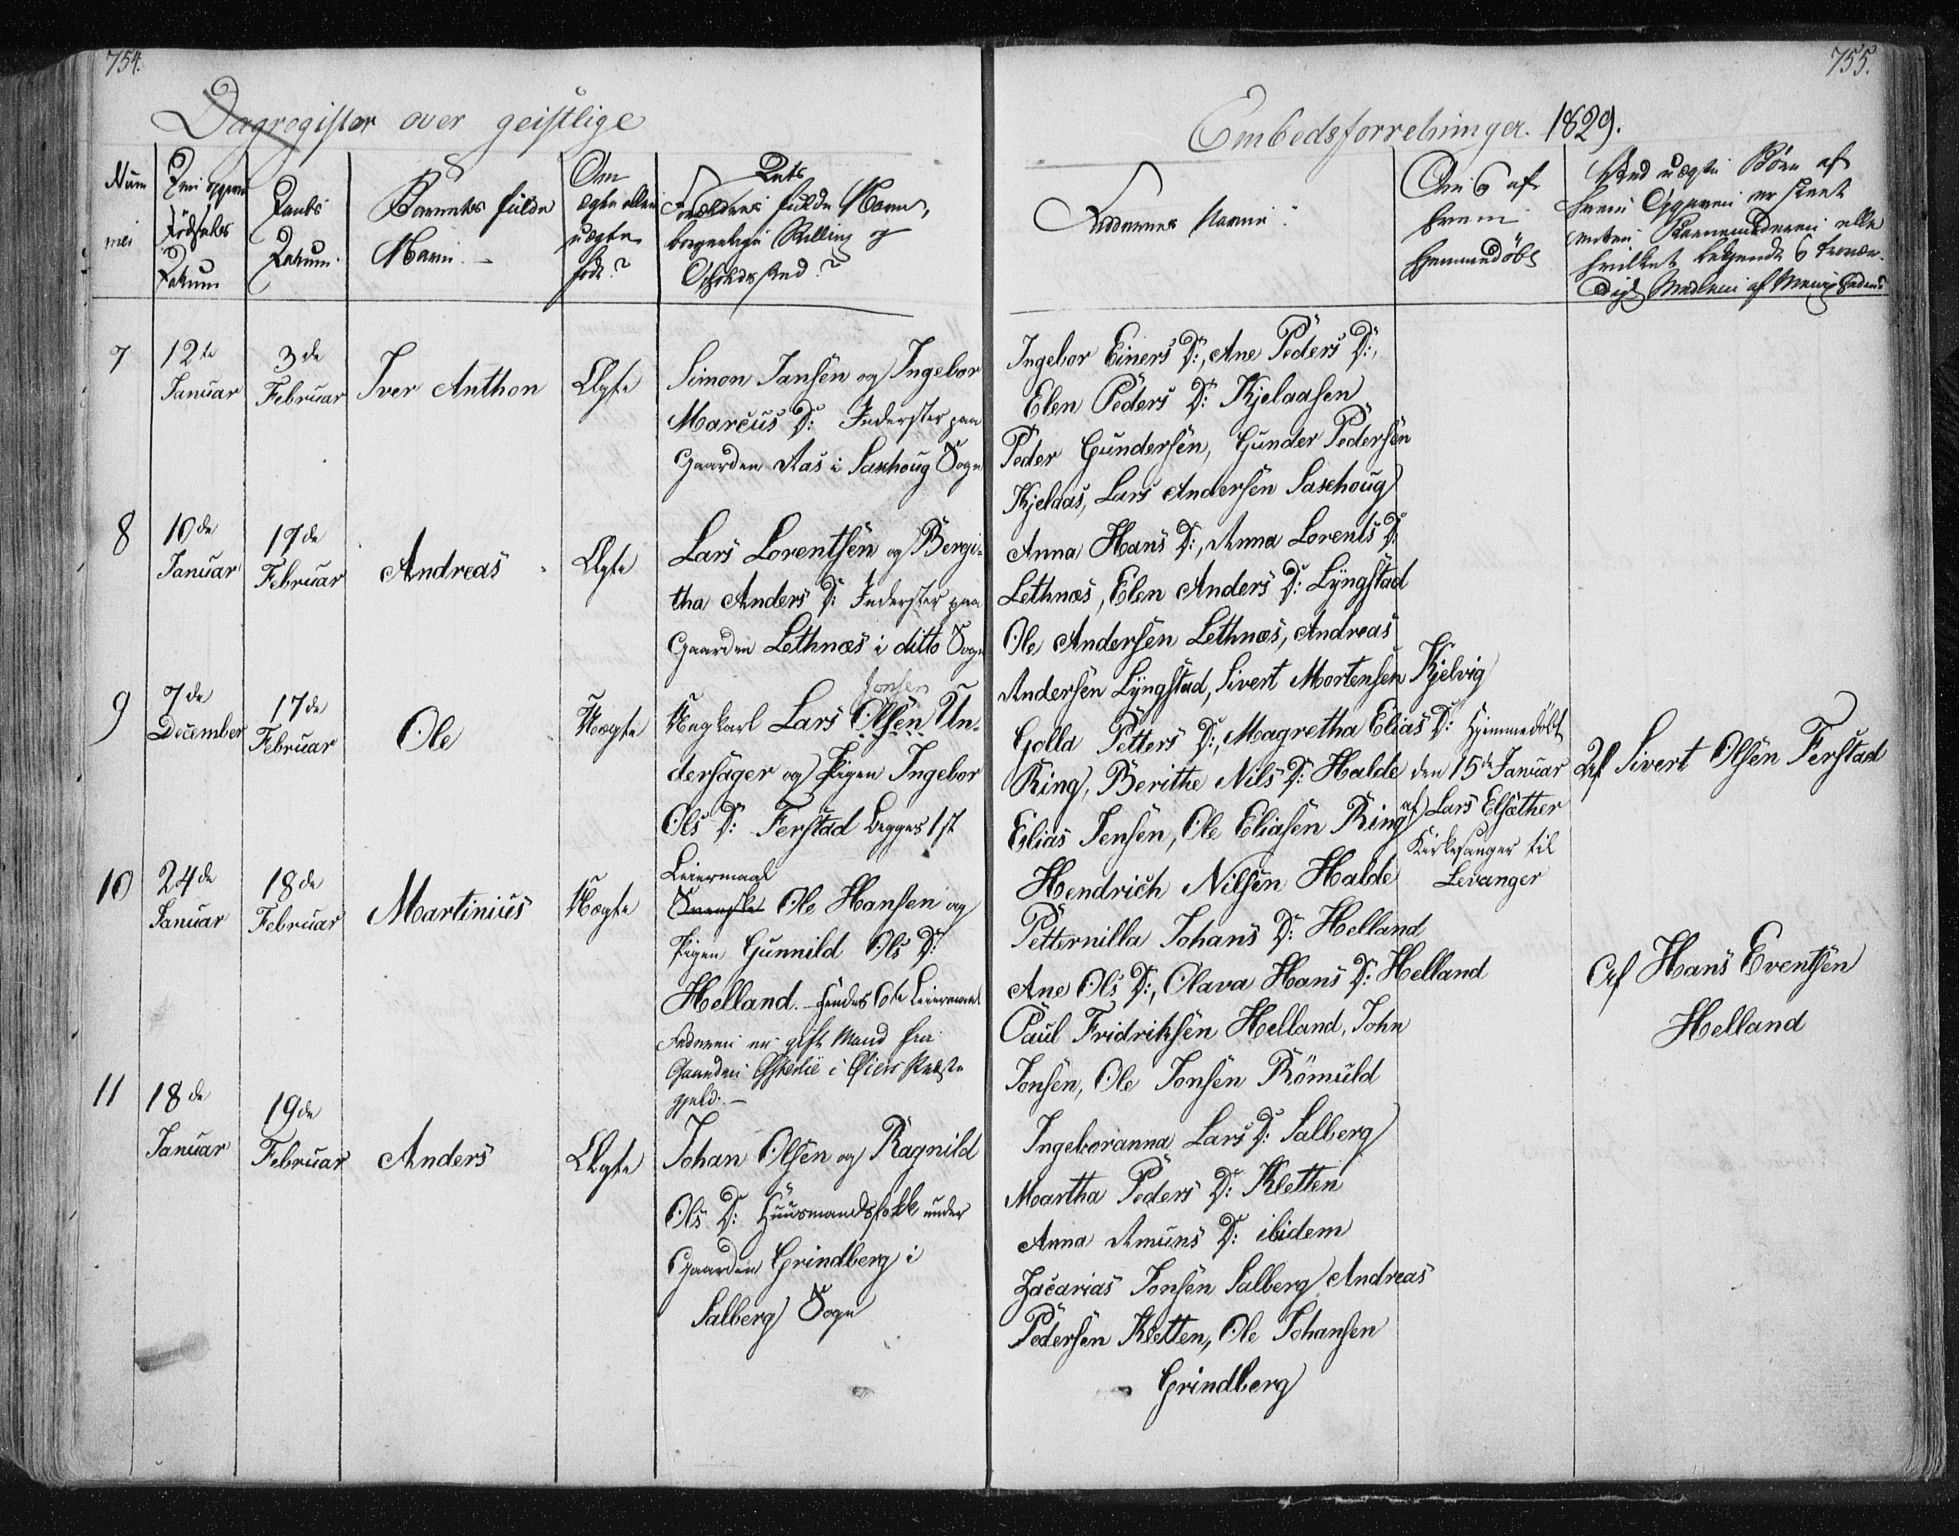 754.
755.
Dagregister over geistlige
Embedsforretninger. 1829.
Num
mer
Den opgivne
Födsels
Datum
Daabs
Datum.
Barnets fulde
Navn.
Om
ægte eller
uægte
født?
Dets
Forældres fulde Navn,
borgerlige Stilling og
Opholdssted?
Faddernes Navne.
Om og af
hvem
hjemmedöbt
Ved uægte Börn af
hvem Opgaven er skeet
enten Barnemoderen eller
7
12te
Januar
3de
Februar
Iver Anthon
Ægte
Simon Jansen og Ingebor
Marcus D: Inderster paa
Gaarden Aas i Saxhoug Sogn
Ingebor Einers D:, Ane Peders D:,
Elen Peders D: Kjelaasen
Peder Gundersen, Gunder Pedersen
Kjelaas, Lars Andersen Saxhoug
8
10de
Januar
17de
Februar
Andreas
Ægte
Lars Lorentsen og Bergi-
tha Anders D: Inderster paa
Gaarden Lethnæs i ditto Sogn
Anna Hans D:, Anna Lorents D:
Lethnæs, Elen Anders D: Lyngstad
Ole Andersen Lethnæs, Andreas
Andersen Lyngstad, Sivert Mortensen Kjelvig
9
7de
December
17de
Februar
Ole
Uægte
Jonsen
Ungkarl Lars Olsen Un-
dersager og Pigen Ingebor
Ols D: Ferstad begges 1st
Leiermaal
Golla Petters D:, Magretha Elias D:
Ring, Berithe Nils D: Halde
Elias Jensen, Ole Eliasen Ring
Hendrich Nilsen Halde
Hjemmedöbt
den 15de Januar
af Lars Elsæther
Kirkesanger til
Levanger
Af Sivert Olsen Ferstad
10
24de
Januar
18de
Februar
Martinius
Uægte
Svenske Ole Hansen og
Pigen Gunnild Ols D:
Helland. Hendes Leiermaal
Faderen er gift Mand fra
Gaarden Østerlie i Præste
gjeld.
Petternilla Johans D: Helland
Ane Ols D:, Olava Hans D: Helland
Paul Fridriksen Helland, John
Jonsen, Ole Jonsen Römuld
Af Hans Eventsen
Helland
11
18de
Januar
19de
Februar
Anders
Ægte
Johan Olsen og Ragnild
Ols D: Huusmandsfolk under
Gaarden Grindberg i
Salberg Sogn
Ingeboranna Lars D: Salberg
Martha Peders D: Kletten
Anna Amuns D: ibidem
Zacarias Jonsen Salberg Andreas
Pedersen Kletten, Ole Johansen
Grindberg